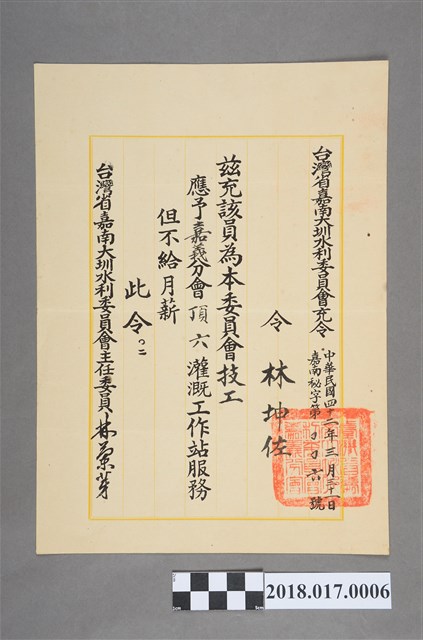 台灣省嘉南大圳水利委員會充令
中華民國四十二年三月三十一日
嘉南秘字第〇〇六號
令 林坤佐
茲充該員為本委員會技工
應予嘉義分會頂六灌溉工作站服務
但不給月薪
此令
台灣省嘉南大圳水利委員會主任委員林蘭芽
2018.017.0006